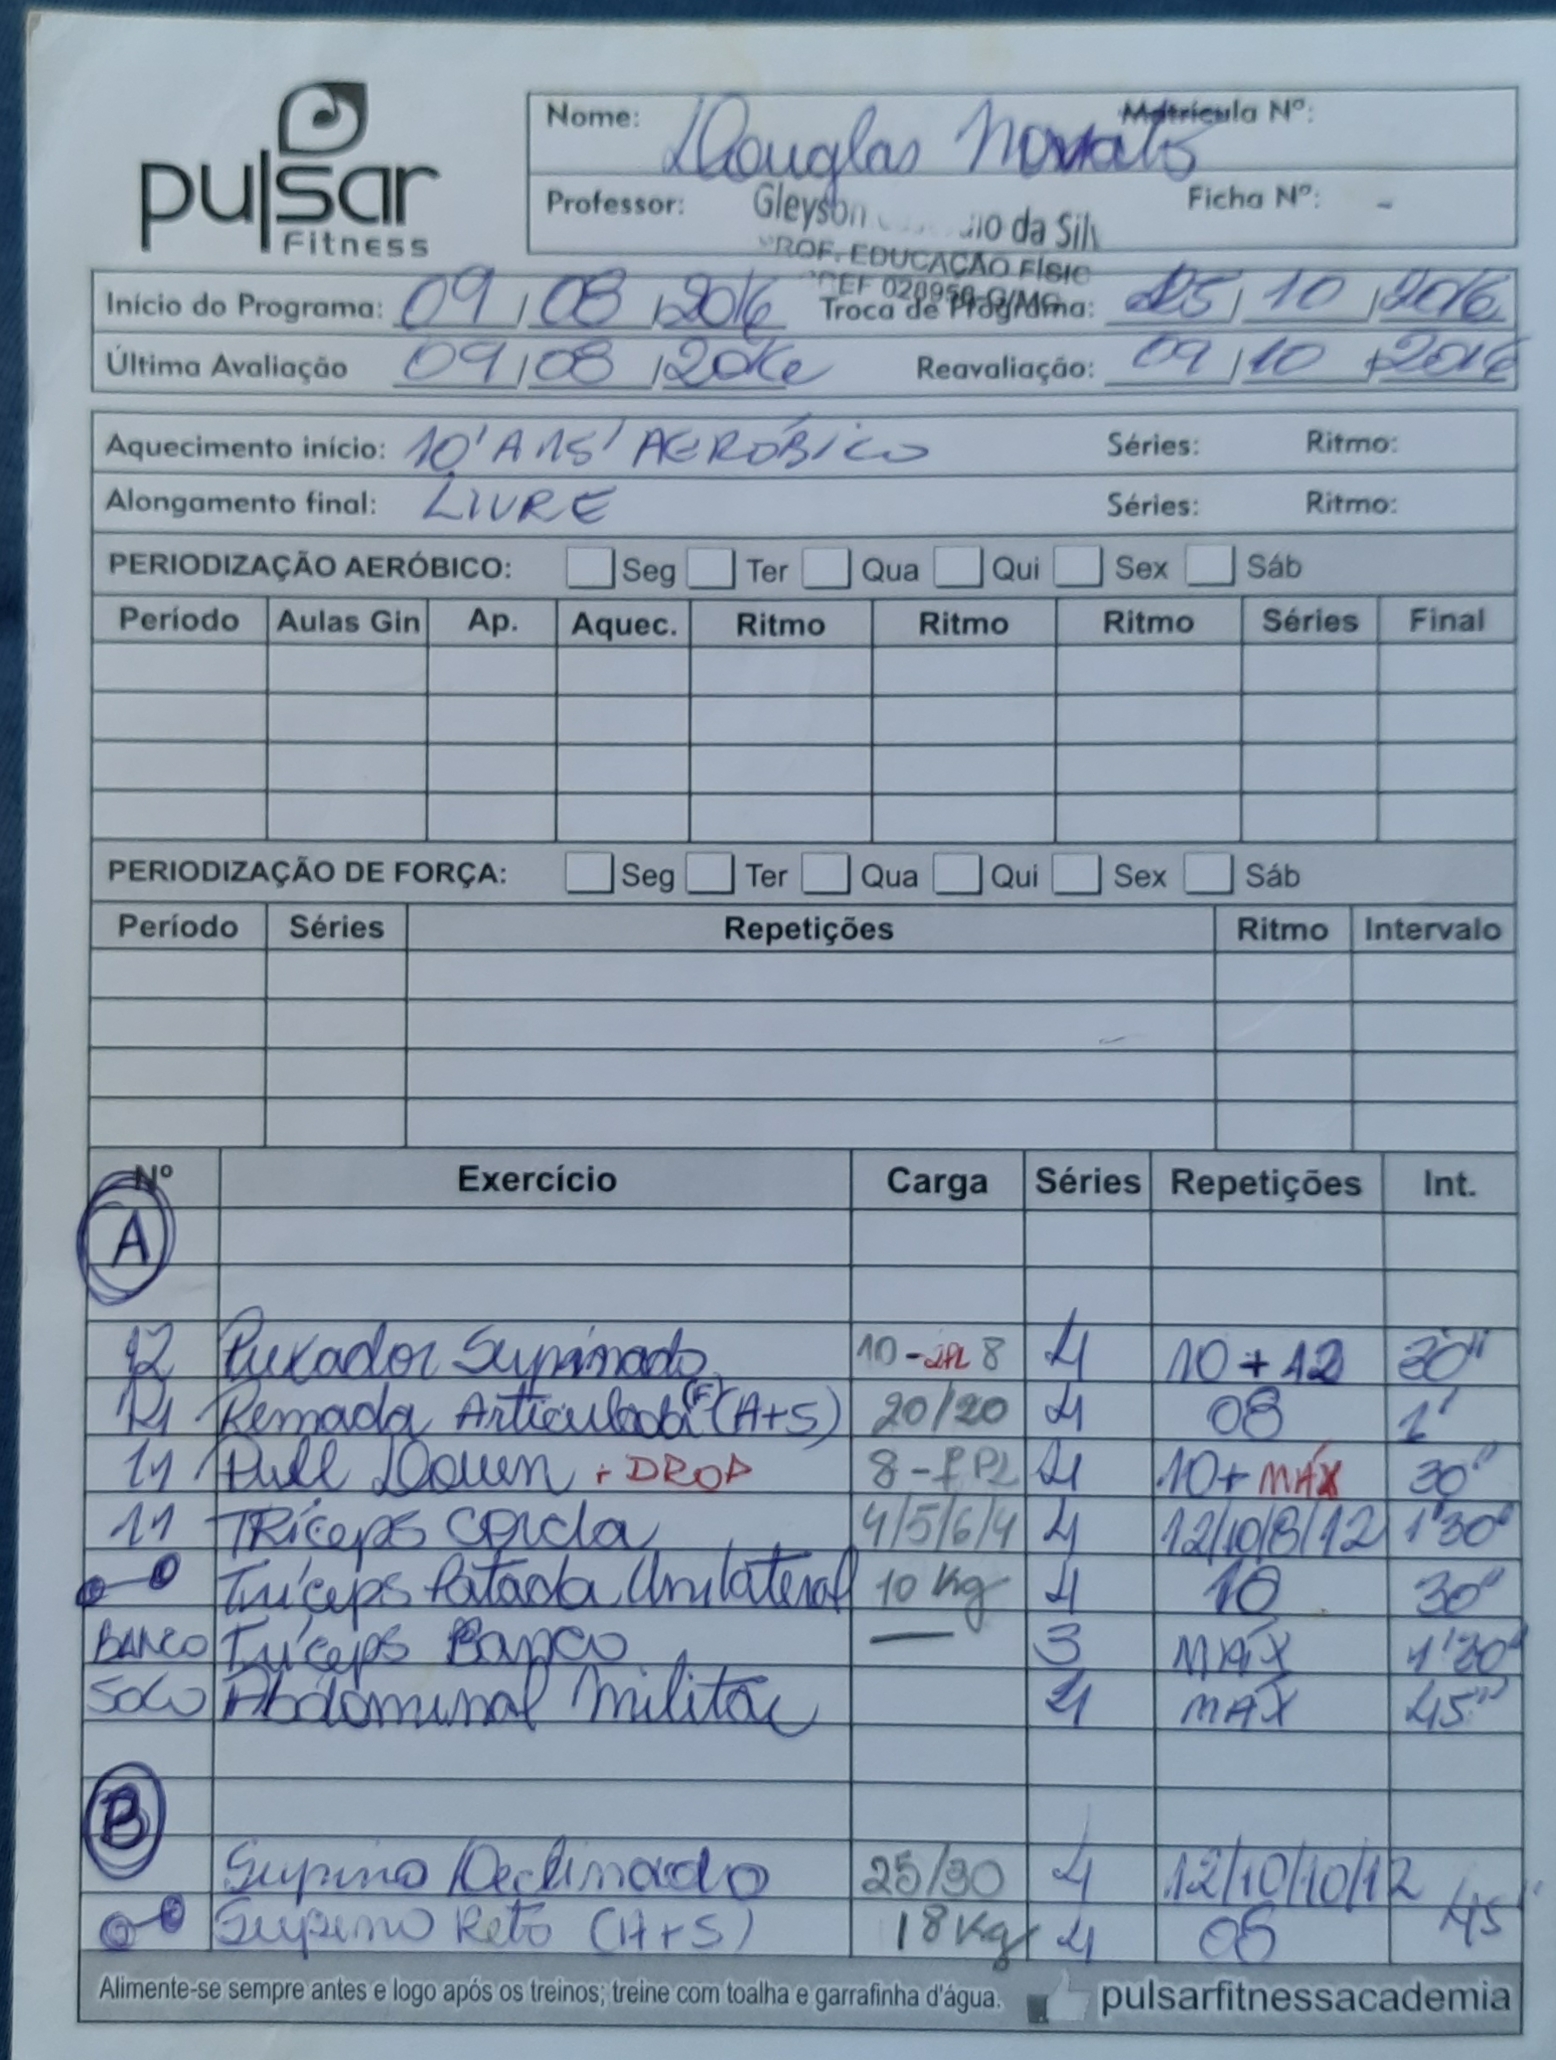 pulsar
Fitness
Nome: Douglas Matrícula Nº:
Professor: Gleyson da Silv Ficha Nº: -
PROF. EDUCAÇÃO FÍSIC
Início do Programa: 09/08/2016 Troca de Programa: 25/10/2016
Última Avaliação 09/08/2016 Reavaliação: 09/10/2016
Aquecimento início: 10' A 15' AERÓBICO Séries: Ritmo:
Alongamento final: LIVRE Séries: Ritmo:
PERIODIZAÇÃO AERÓBICO: Seg Ter Qua Qui Sex Sáb
Período Aulas Gin Ap. Aquec. Ritmo Ritmo Ritmo Séries Final
PERIODIZAÇÃO DE FORÇA: Seg Ter Qua Qui Sex Sáb
Período Séries Repetições Ritmo Intervalo
Nº Exercício Carga Séries Repetições Int.
A
12 Puxador Supinado 10 - 2PL 8 4 10 + 12 30"
Remada Articulada (F) (A+S) 20/20 4 08 1'
11 Pull Down + DROP 8 - PL 4 10 + MÁX 30"
11 TRíceps corda 4/5/6/4 4 12/10/8/12 1'30"
Tríceps Patada Unilateral 10 Kg 4 10 30"
BANCO Tríceps Banco — 3 MÁX 1'30"
SOLO Abdominal Militar 4 MÁX 45"
B
Supino Declinado 25/30 4 12/10/10/12
Supino Reto (A+S) 18 Kg 4 08 45"
Alimente-se sempre antes e logo após os treinos; treine com toalha e garrafinha d'água. pulsarfitnessacademia